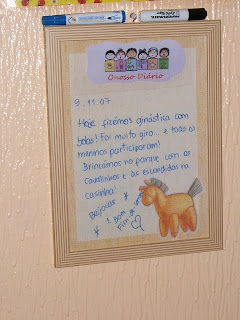 O nosso Diário
9.11.07
Hoje fizémos ginástica com
bolas! Foi muito giro... e todos os
meninos participaram!
Brincámos no parque com os
cavalinhos e às escondidas na
casinha!
Beijocas
e Bom
Fim